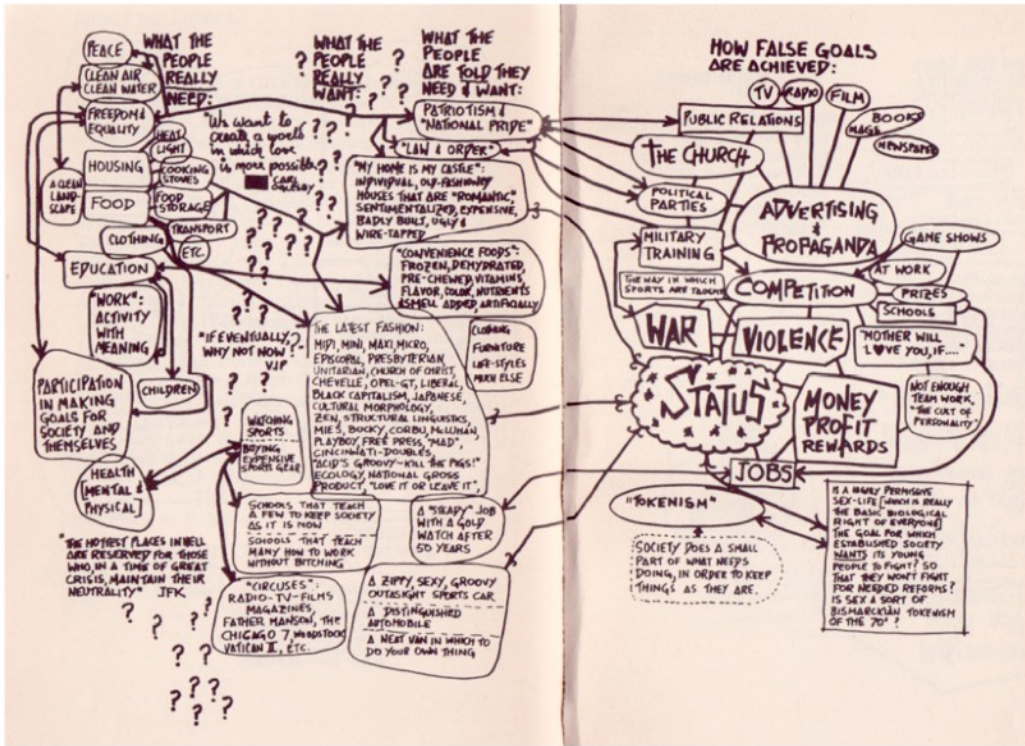 WHAT THE
PEOPLE
REALLY
NEED:
PEACE
CLEAN AIR
CLEAN WATER
FREEDOM &
EQUALITY
HEAT
LIGHT
HOUSING
COOKING
STOVES
A CLEAN
LAND-
SCAPE
FOOD
FOOD
STORAGE
TRANSPORT
CLOTHING
ETC.
EDUCATION
"WORK":
ACTIVITY
WITH
MEANING
CHILDREN
PARTICIPATION
IN MAKING
GOALS FOR
SOCIETY AND
THEMSELVES
HEALTH
[MENTAL &
PHYSICAL]
"THE HOTTEST PLACES IN HELL
ARE RESERVED FOR THOSE
WHO, IN A TIME OF GREAT
CRISIS, MAINTAIN THEIR
NEUTRALITY" JFK
WHAT THE
PEOPLE
REALLY
WANT:
"We want to
create a world
in which love
is more possible"
CARL
OGLESBY
"IF EVENTUALLY,
WHY NOT NOW"
VJP
WHAT THE
PEOPLE
ARE TOLD THEY
NEED & WANT:
PATRIOTISM &
"NATIONAL PRIDE"
"LAW & ORDER"
"MY HOME IS MY CASTLE":
INDIVIDUAL, OLD-FASHIONED
HOUSES THAT ARE "ROMANTIC",
SENTIMENTALIZED, EXPENSIVE,
BADLY BUILT, UGLY &
WIRE-TAPPED
"CONVENIENCE FOODS":
FROZEN, DEHYDRATED
PRE-CHEWED, VITAMINS,
FLAVOR, COLOR, NUTRIENTS
& SMELL ADDED, ARTIFICIALLY
THE LATEST FASHION:
MIDI, MINI, MAXI, MICRO,
EPISCOPAL, PRESBYTERIAN
UNITARIAN, CHURCH OF CHRIST,
CHEVELLE, OPEL-GT, LIBERAL,
BLACK CAPITALISM, JAPANESE,
CULTURAL MORPHOLOGY,
ZEN, STRUCTURAL LINGUISTICS,
MIES, BUCKY, CORBU, McLUHAN,
PLAYBOY, FREE PRESS, "MAD",
CINCINNATI-DOUBLES,
"ACID'S GROOVY-KILL THE PIGS!"
ECOLOGY, NATIONAL GROSS
PRODUCT, "LOVE IT OR LEAVE IT",
CLOTHING
FURNITURE
LIFE-STYLES
MUCH ELSE
WATCHING
SPORTS
BUYING
EXPENSIVE
SPORTS GEAR
SCHOOLS THAT TEACH
A FEW TO KEEP SOCIETY
AS IT IS NOW
SCHOOLS THAT TEACH
MANY HOW TO WORK
WITHOUT BITCHING
"CIRCUSES":
RADIO-TV-FILMS
MAGAZINES,
FATHER MANSON, THE
CHICAGO 7, WOODSTOCK
VATICAN II, ETC.
A "STEADY" JOB
WITH A GOLD
WATCH AFTER
50 YEARS
A ZIPPY, SEXY, GROOVY
OUTASIGHT SPORTS CAR
A DISTINGUISHED
AUTOMOBILE
A NEAT VAN IN WHICH TO
DO YOUR OWN THING
HOW FALSE GOALS
ARE ACHIEVED:
TV
RADIO
FILM
BOOKS
MAGS
NEWSPAPER
PUBLIC RELATIONS
THE CHURCH
POLITICAL
PARTIES
ADVERTISING
&
PROPAGANDA
MILITARY
TRAINING
GAME SHOWS
THE WAY IN WHICH
SPORTS ARE TAUGHT
COMPETITION
AT WORK
PRIZES
SCHOOLS
WAR
VIOLENCE
"MOTHER WILL
L♥VE YOU, IF...."
STATUS
MONEY
PROFIT
REWARDS
NOT ENOUGH
TEAM WORK,
"THE CULT OF
PERSONALITY"
JOBS
"TOKENISM"
SOCIETY DOES A SMALL
PART OF WHAT NEEDS
DOING, IN ORDER TO KEEP
THINGS AS THEY ARE.
IS A HIGHLY PERMISSIVE
SEX-LIFE [WHICH IS REALLY
THE BASIC BIOLOGICAL
RIGHT OF EVERYONE]
THE GOAL FOR WHICH
ESTABLISHED SOCIETY
WANTS ITS YOUNG
PEOPLE TO FIGHT? SO
THAT THEY WON'T FIGHT
FOR NEEDED REFORMS?
IS SEX A SORT OF
BISMARCKIAN TOKENISM
OF THE 70s?